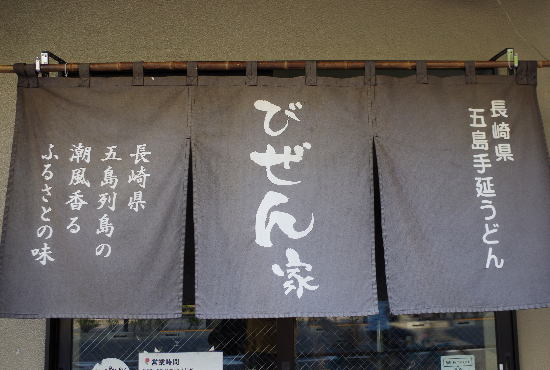 長崎県
五島手延うどん
びぜん家
長崎県
五島列島の
潮風香る
ふるさとの味
営業時間